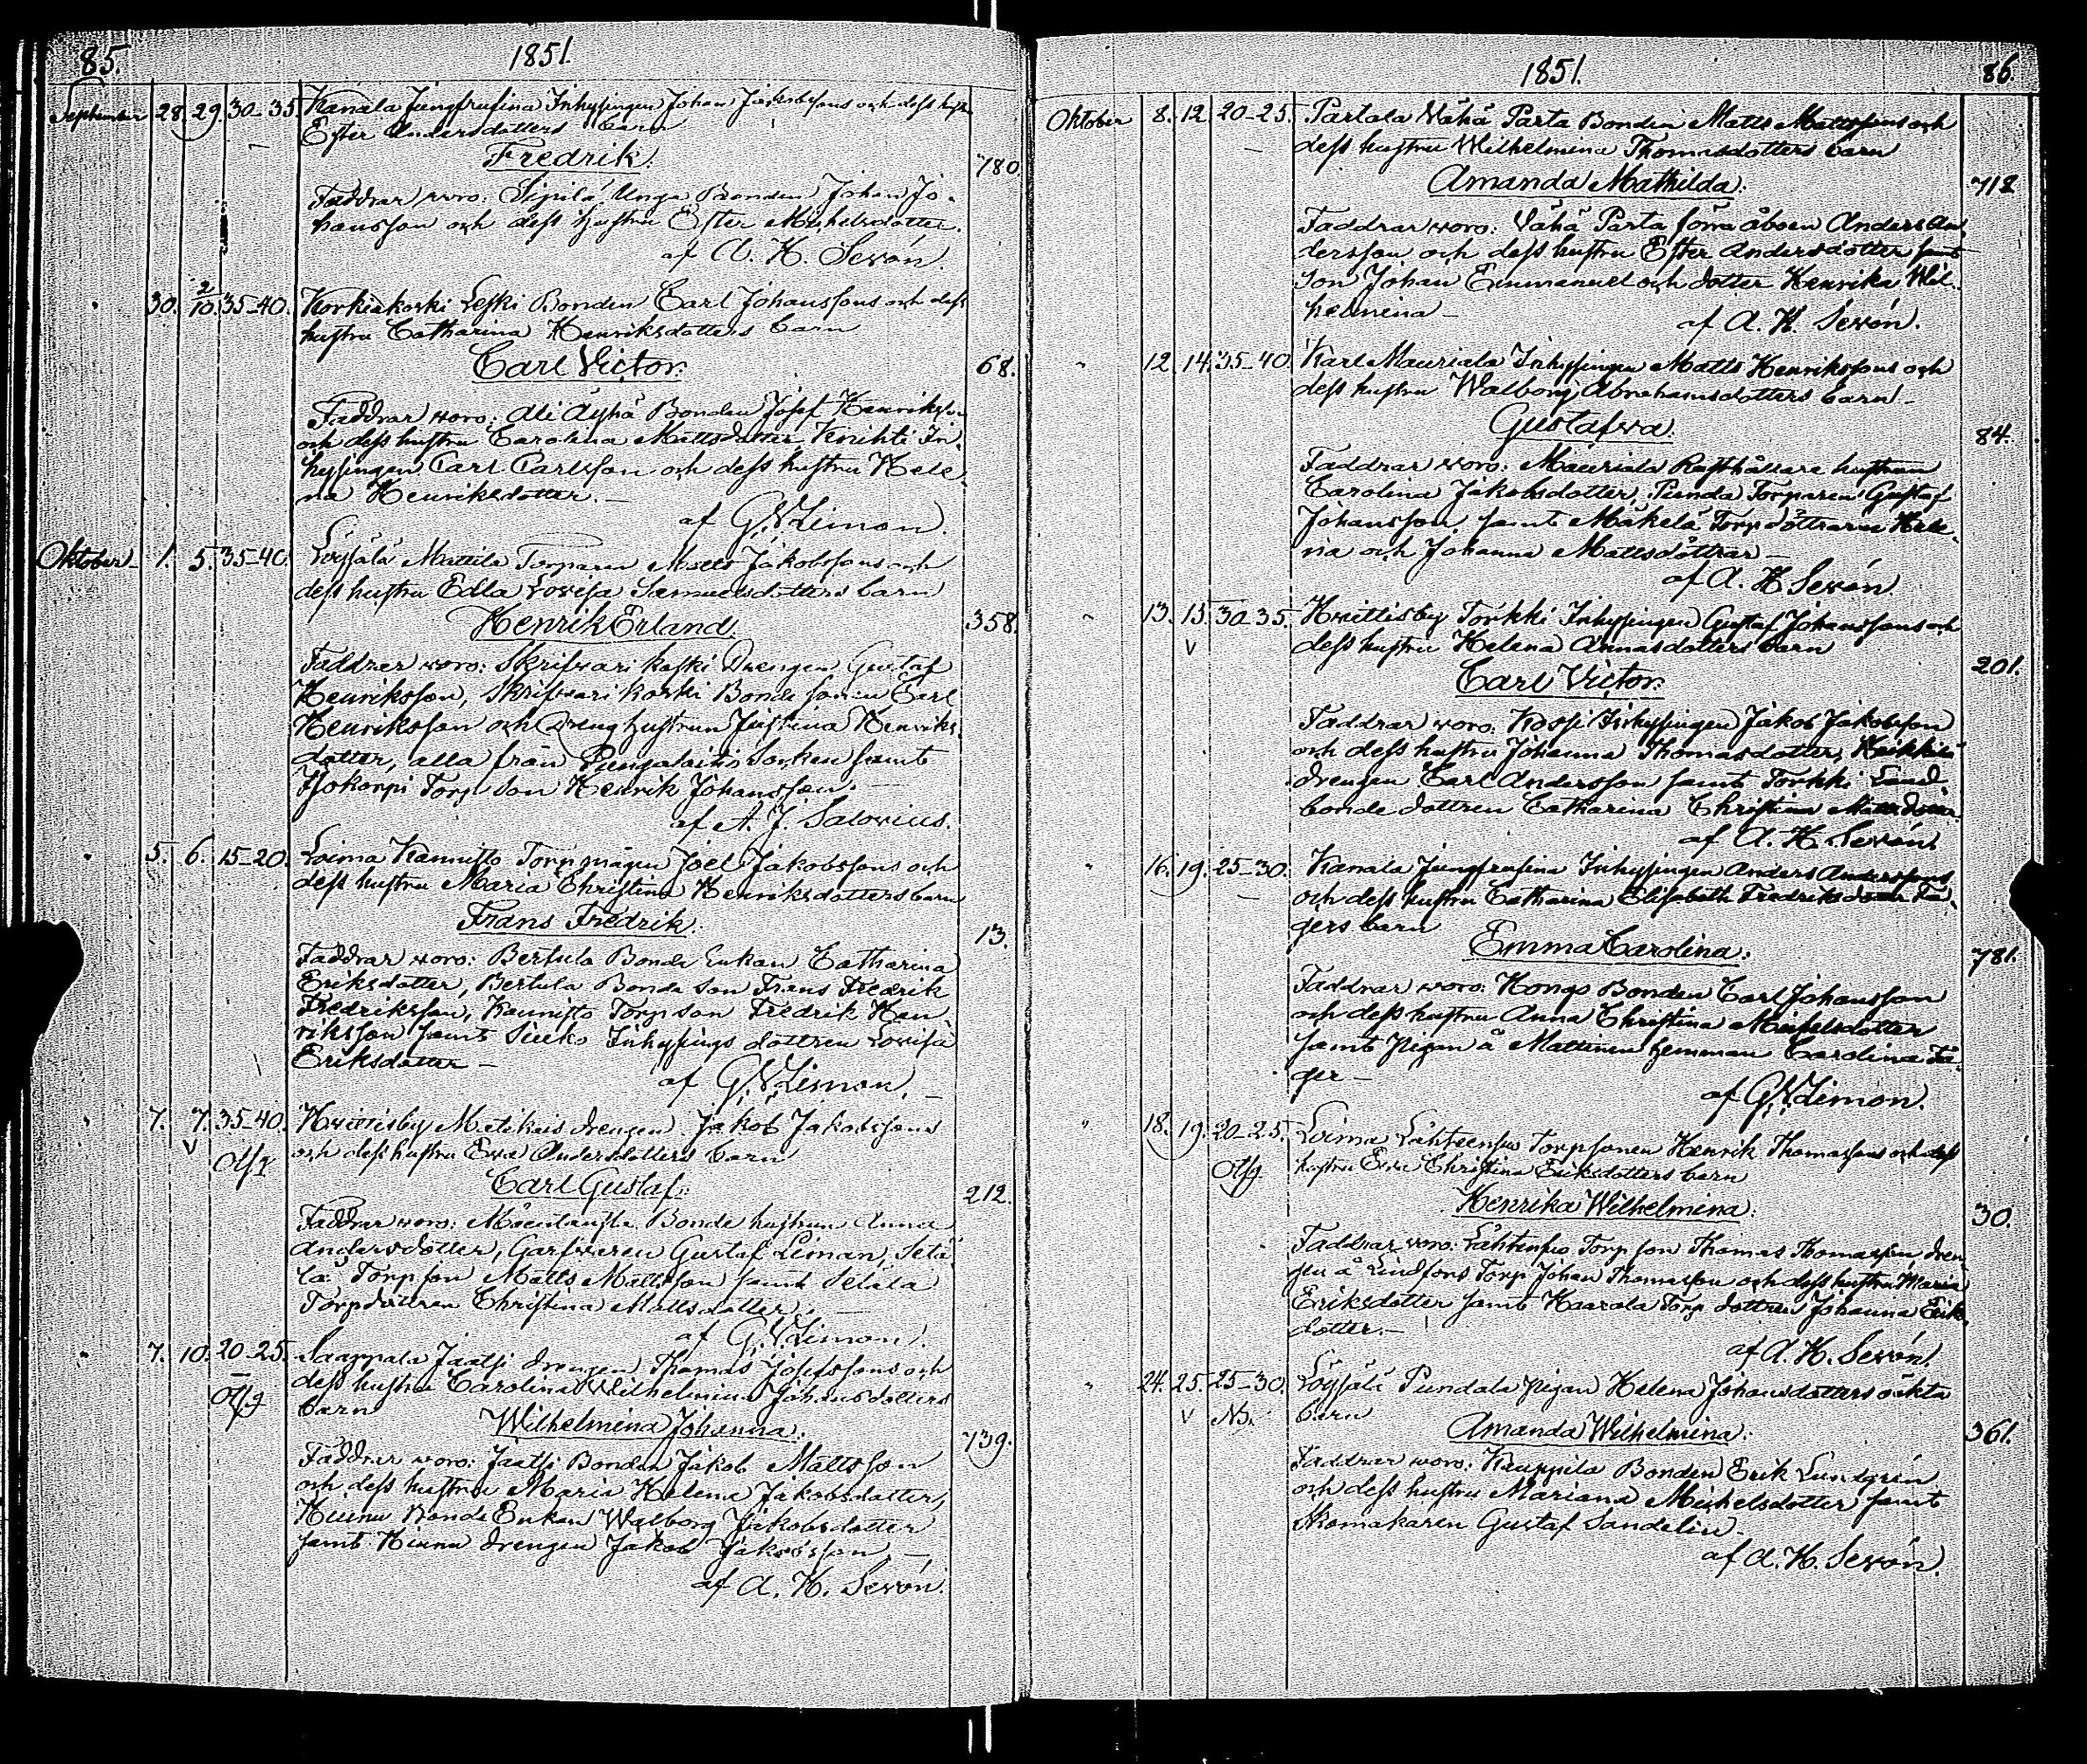 85.
1851.
September 28. 29. 30-35. Kanala Jungfrusina Inhysingen Johan Jakobssons och dess hustru
Ester Andersdotters barn
Fredrik.
780.
Faddrar woro: Sipilä Unga Bonden Johan Jo-
hansson och dess hustru Ester Michelsdotter.
af A. H. Sevón.
30. 2/10 35-40. Korkiakoski Leski Bonden Carl Johanssons och dess
hustru Catharina Henriksdotters barn
Carl Victor.
68.
Faddrar woro: Ali Äyhö Bonden Josef Henriksson
och dess hustru Carolina Mattsdotter, Knihti In-
hysingen Carl Carlsson och dess hustru Hele-
na Henriksdotter.
af G. V. Limon.
Oktober 1. 5. 35-40. Löysälä Mattila Torparen Matts Jakobssons och
dess hustru Edla Lovisa Samuelsdotters barn
Henrik Erland.
358.
Faddrar woro: Skrifvari koski Drengen Gustaf
Henriksson, Skrifvari koski Bonde sonen Carl
Henriksson och Dreng hustrun Justina Henriks-
dotter, alla från Pungalaitio Socken samt
Isokorpi Torp son Henrik Johansson.
af A. J. Salovius.
5. 6. 15-20. Loima Kannisto Torp mågen Joel Jakobssons och
dess hustru Maria Christina Henriksdotters barn
Frans Fredrik.
13.
Faddrar woro: Bertula Bonde Enkan Catharina
Eriksdotter, Bertula Bonde son Frans Fredrik
Fredriksson, Kannisto Torp son Fredrik Hen
riksson samt Sieko Inhysings dottren Lovisa
Eriksdotter
af G. V. Limon.
7. 7. 35-40. Hvittisby Drengen Jakob Jakobssons
och dess hustru Eva Andersdotters barn
Carl Gustaf.
212.
Faddrar woro: Bonde hustrun Anna
Andersdotter, Garfvaren Gustaf Liman, Setä-
lä Torp son Matts Mattsson samt Setälä
Torpdottren Christina Mattsdotter.
af G. V. Limon.
7. 10. 20-25. Sammala Jaatsi drengen Thomas Josefssons och
dess hustru Carolina Wilhelmina Johansdotters
barn
Wilhelmina Johanna.
739.
Faddrar woro: Jaatsi Bonden Jakob Mattsson
och dess hustru Maria Helena Jakobsdotter,
Hiunu Bonde Enkan Walborg Jakobsdotter
samt Hiunu drengen Jakob Jakobsson
af A. H. Sevón.
1851.
86.
Oktober 8. 12. 20-25. Partala Vähä Parta Bonden Matts Mattssons och
dess hustru Wilhelmina Thomasdotters barn
Amanda Mathilda.
712
Faddrar woro: Vähä Parta förra åboen Anders An
dersson och dess hustru Ester Andersdotter samt
son Johan Emmanuel och dotter Henrika Wil-
helmina
af A. H. Sevón.
12. 14. 35-40. Karl Mauriala Inhysingen Matts Henrikssons och
dess hustru Walborg Abrahamsdotters barn
Gustafva.
84.
Faddrar woro: Mauriala Rusthållare hustrun
Carolina Jakobsdotter, Punda Torparen Gustaf
Johansson samt Mäkelä Torp döttrarne Hele-
na och Johanna Mattsdöttrar
af A. H. Sevón
13. 15. 30-35. Hvittisby Torkki Inhysingen Gustaf Johanssons och
dess hustru Helena Annasdotters barn
Carl Victor.
201.
Faddrar woro: Inhysingen Jakob Jakobsson
och dess hustru Johanna Thomasdotter, Heikkilä
drengen Carl Andersson samt Torkki Land-
bonde dottren Catharina Christina Mattsdotter.
af A. H. Sevón
16. 19. 25-30. Kanala Jungfrusina Inhysingen Anders Anderssons
och dess hustru Catharina Elisabeth Fredriksdotter Få-
gers barn
Emma Carolina.
781.
Faddrar woro: Hongo Bonden Carl Johansson
och dess hustru Anna Christina Michelsdotter
samt pigan å Mattinen hemman Carolina Få-
ger
af G. V. Limon.
18. 19. 20-25. Loima Torpsonen Henrik Thomassons och dess
hustru Eva Christina Eriksdotters barn
Henrika Wilhelmina.
30.
Faddrar woro: Torp son Thomas Thomasson, dren-
gen å Lindfors Torp Johan Thomasson och dess hustru Maria
Eriksdotter samt Haarala Torp dottren Johanna Eriks-
dotter.
af A. H. Sevón.
24. 25. 25-30. Löysälä Pundala pigan Helena Johansdotters oäkta
barn
Amanda Wilhelmina.
361.
Faddrar woro: Kauppila Bonden Erik Lundgrén
och dess hustru Mariana Michelsdotter samt
Skomakaren Gustaf Sandelin
af A. H. Sevón.